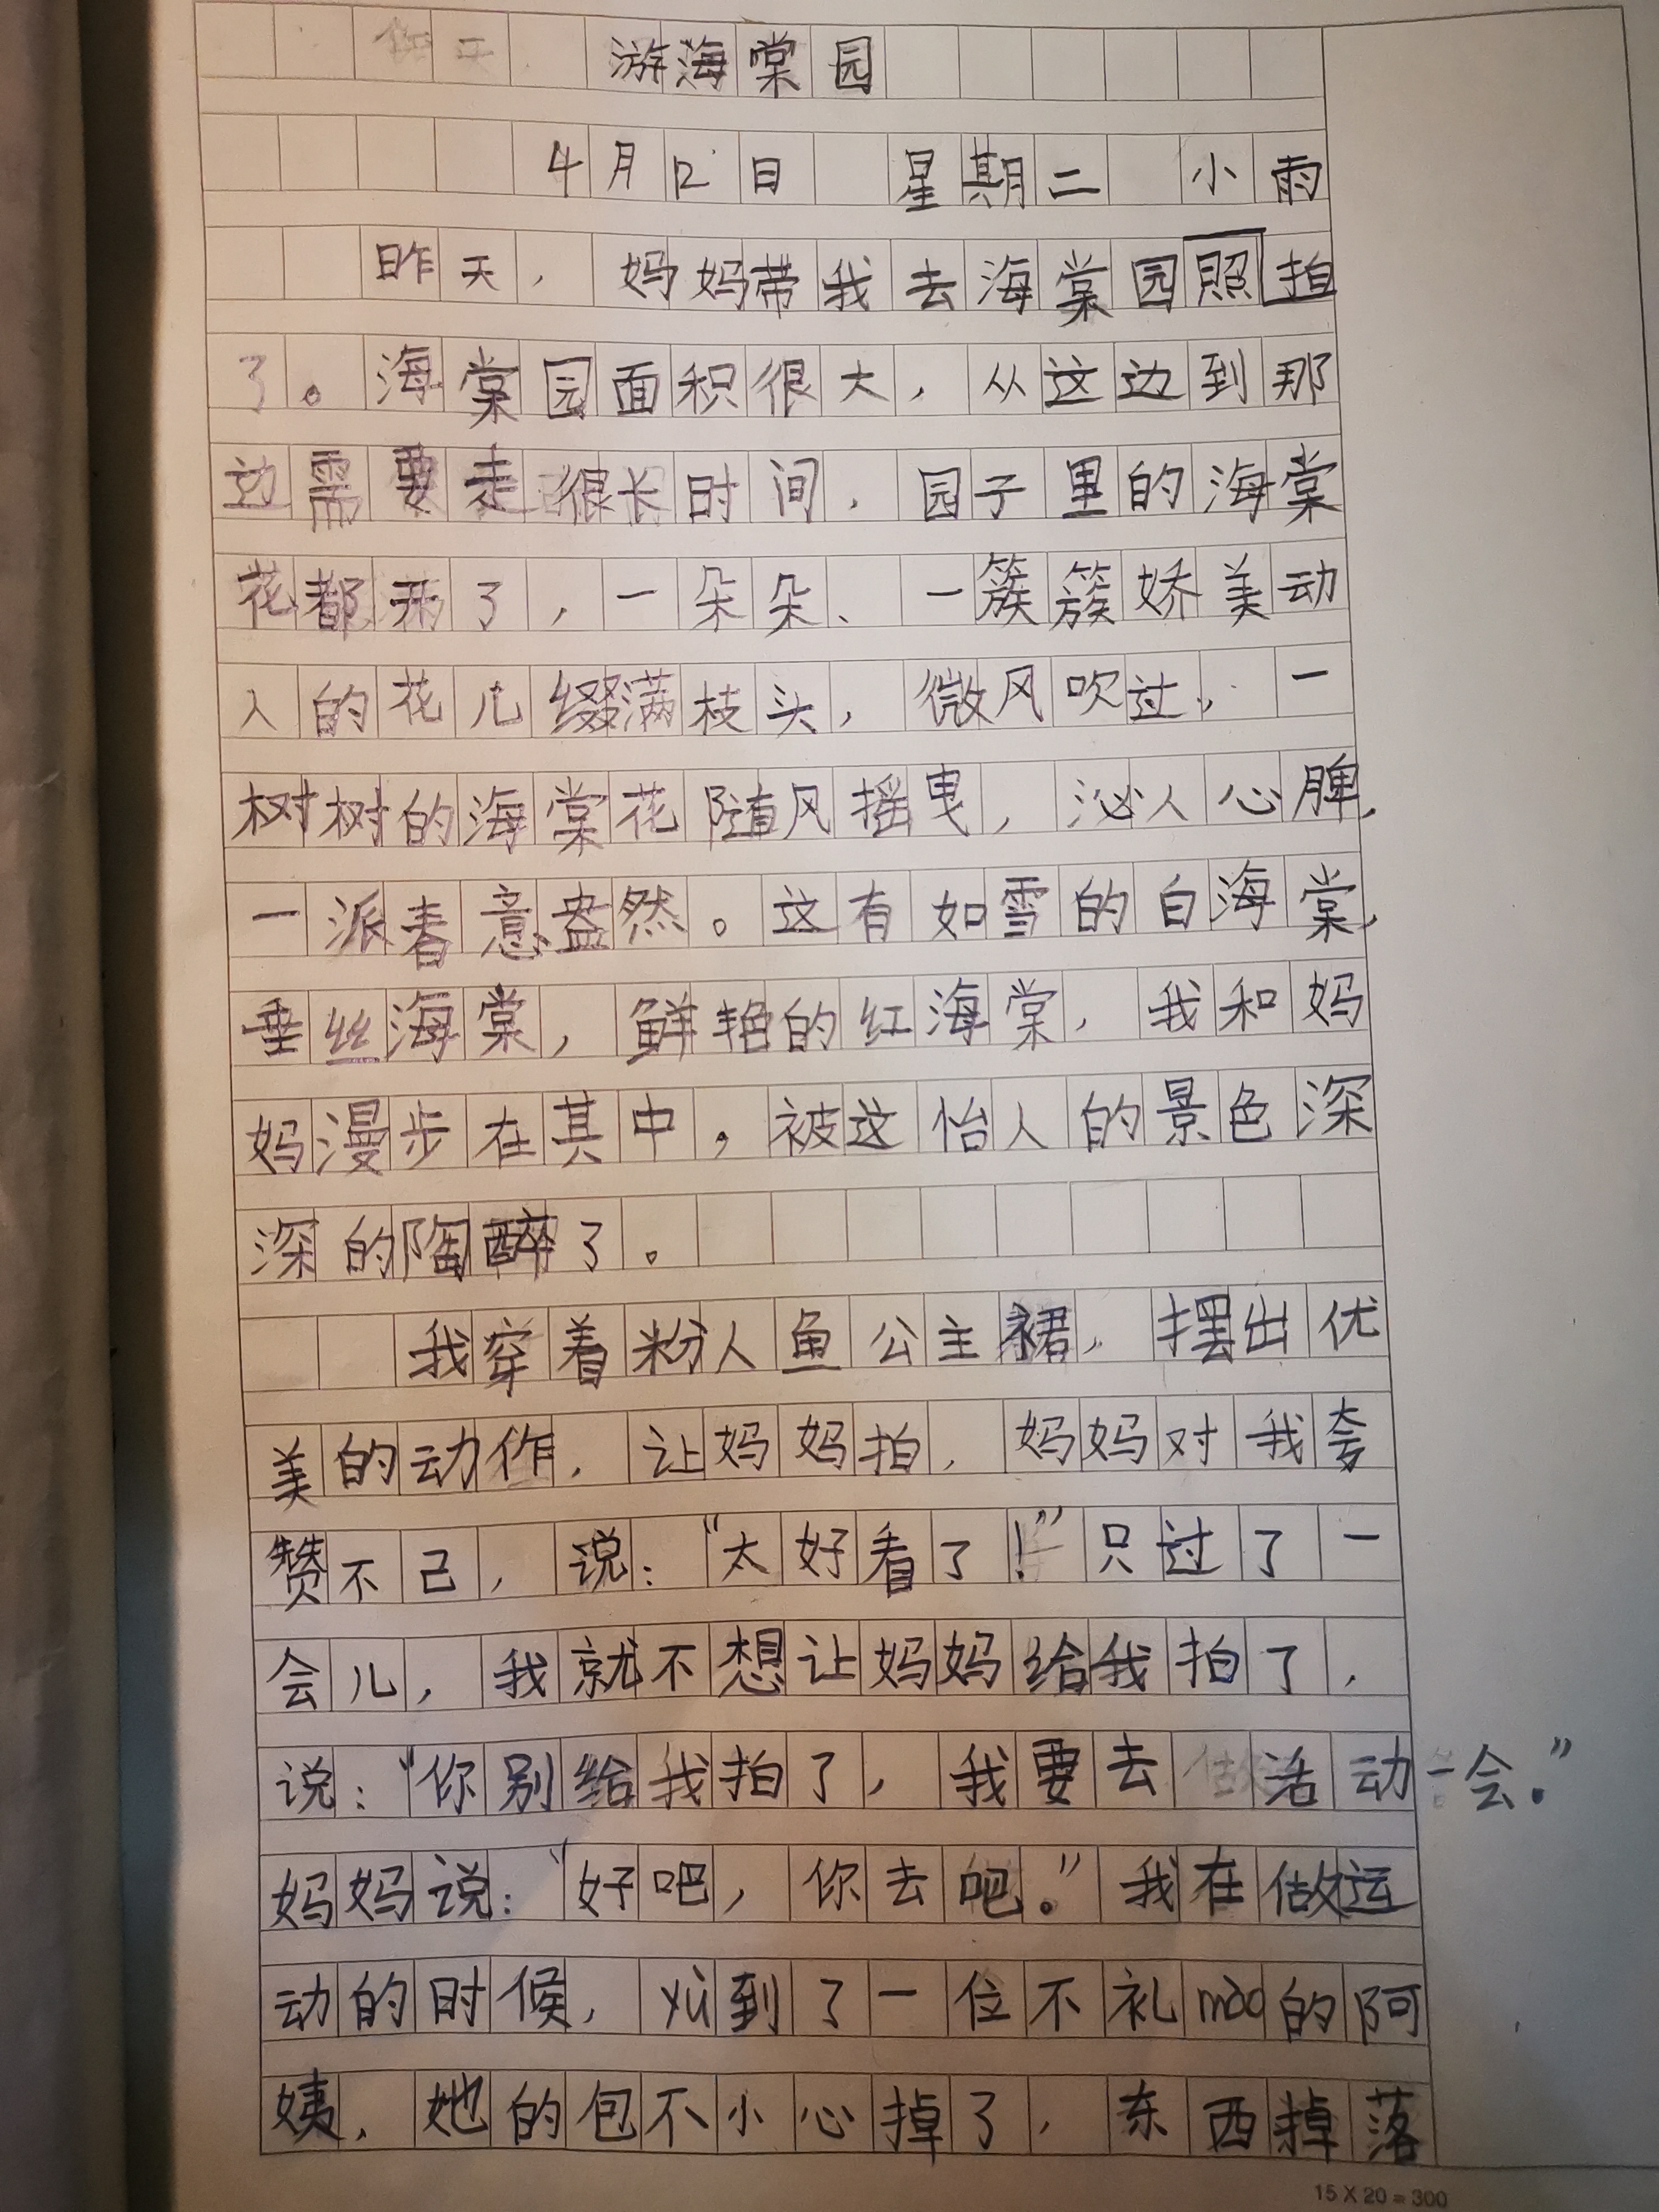 游海棠园
4月12日 星期二 小雨
昨天，妈妈带我去海棠园照拍
了。海棠园面积很大，从这边到那
边需要走很长时间，园子里的海棠
花都开了，一朵朵、一簇簇娇美动
人的花儿缀满枝头，微风吹过，一
树树的海棠花随风摇曳，沁人心脾，
一派春意盎然。这有如雪的白海棠，
垂丝海棠，鲜艳的红海棠，我和妈
妈漫步在其中，被这怡人的景色深
深的陶醉了。
我穿着粉人鱼公主裙，摆出优
美的动作，让妈妈拍，妈妈对我夸
赞不己，说：“太好看了！”只过了一
会儿，我就不想让妈妈给我拍了，
说：“你别给我拍了，我要去活动一会.”
妈妈说：“好吧，你去吧.”我在做运
动的时候，yù到了一位不礼mào的阿
姨，她的包不小心掉了，东西掉落
15×20=300